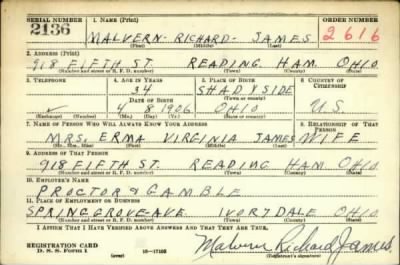 SERIAL NUMBER 1. NAME (Print) ORDER NUMBER
2136 MALVERN- RICHARD- JAMES 2616
(First) (Middle) (Last)
2. ADDRESS (Print)
918 FIFTH ST. READING, HAM. OHIO
(Number and street or R. F. D. number) (Town) (County) (State)
3. TELEPHONE 4. AGE IN YEARS 5. PLACE OF BIRTH 6. COUNTRY OF CITIZENSHIP
34 SHADYSIDE
DATE OF BIRTH (Town or county)
4 8 1906 OHIO U.S.
(Exchange) (Number) (Mo.) (Day) (Yr.) (State or country)
7. NAME OF PERSON WHO WILL ALWAYS KNOW YOUR ADDRESS 8. RELATIONSHIP OF THAT PERSON
MRS. ERMA VIRGINIA JAMES WIFE
(Mr., Mrs., Miss) (First) (Middle) (Last)
9. ADDRESS OF THAT PERSON
918 FIFTH ST. READING HAM. OHIO.
(Number and street or R. F. D. number) (Town) (County) (State)
10. EMPLOYER'S NAME
PROCTOR & GAMBLE
11. PLACE OF EMPLOYMENT OR BUSINESS
SPRING GROVE-AVE. IVORYDALE OHIO.
(Number and street or R. F. D. number) (Town) (County) (State)
I AFFIRM THAT I HAVE VERIFIED ABOVE ANSWERS AND THAT THEY ARE TRUE.
REGISTRATION CARD
D. S. S. Form 1 16-17105 Malvern Richard James.
(Registrant's signature)